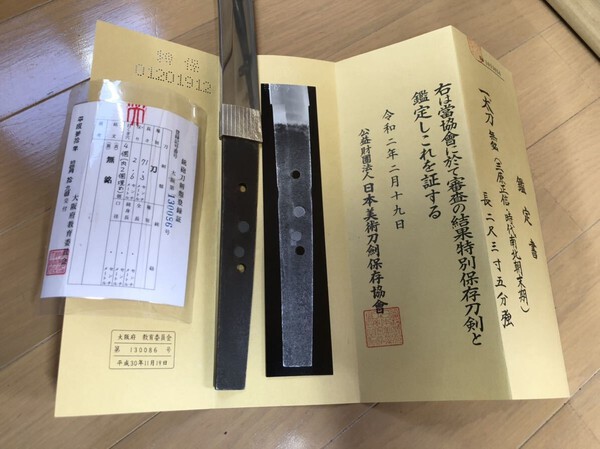 鑑定書
一、太刀 無銘(三原正信・時代南北朝末期)
長二尺三寸五分強
右は當協會に於て審査の結果特別保存刀剣と
鑑定しこれを証する
令和二年二月十九日
公益財團法人日本美術刀劍保存協會
特保
01201912
銃砲刀剣類登録証
大阪府 第130086号
刀
無銘
大阪府教育委
大阪府 教育委員会
第 130086 号
平成30年11月19日